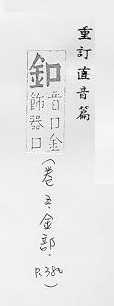 重訂直音篇
釦
音口金
飾器口
(卷五·金部·P.380)